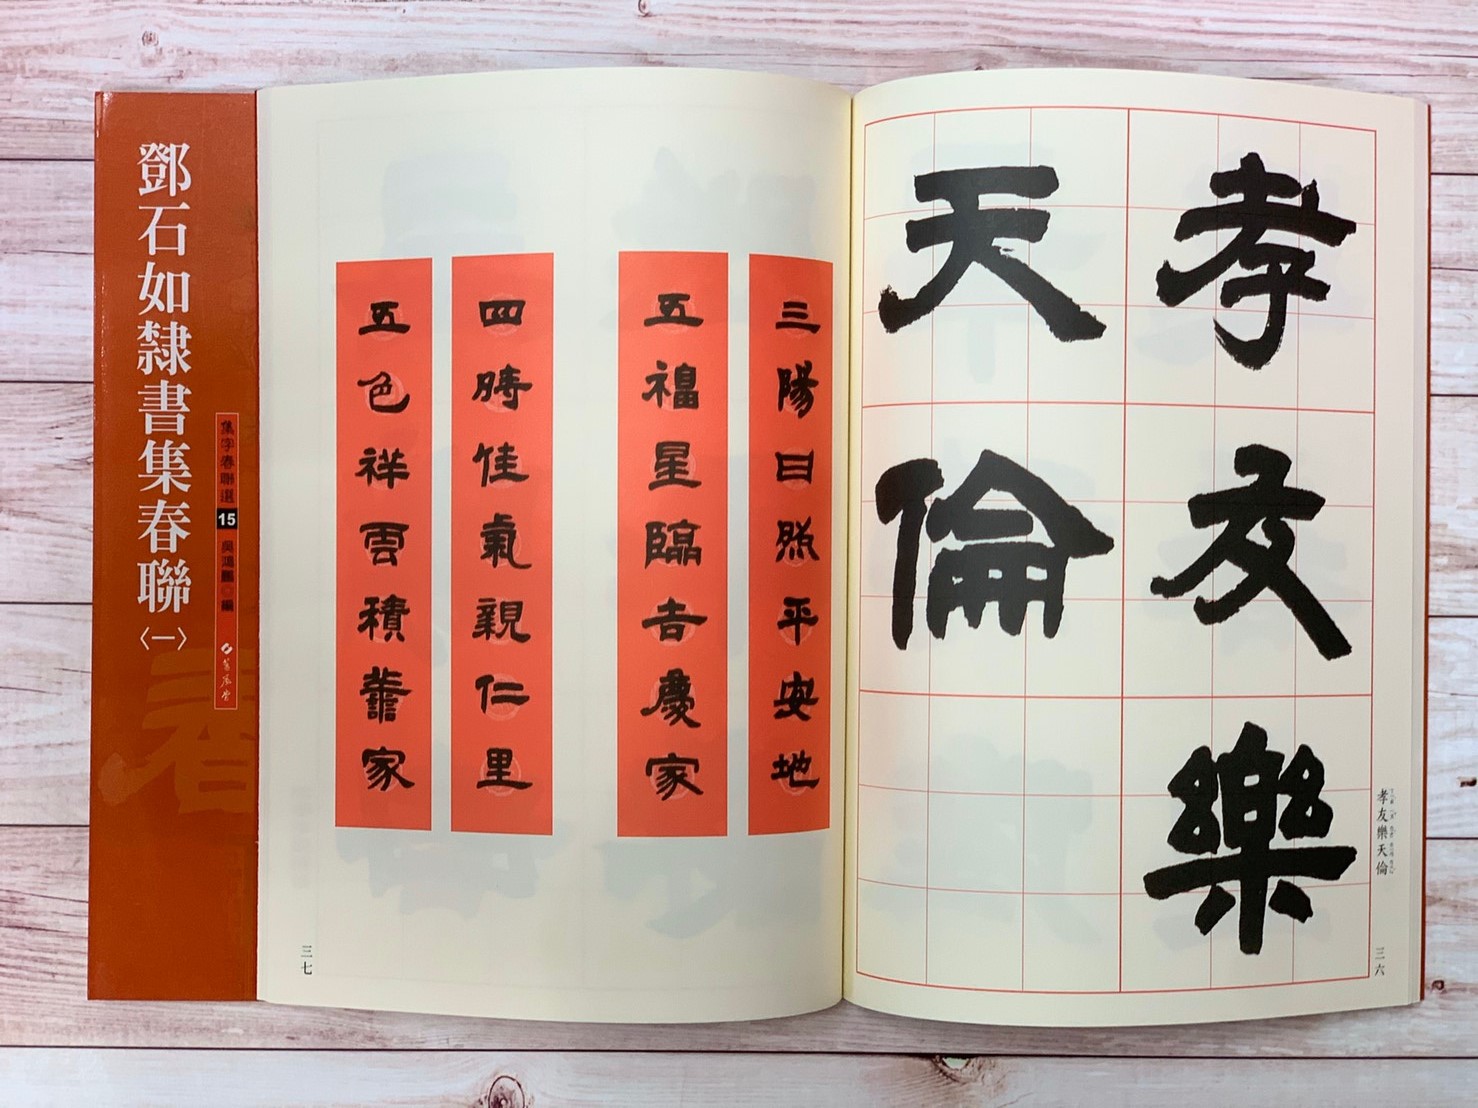 孝友樂天倫
三六
孝友樂
天倫
三陽日照平安地
五福星臨吉慶家
四時佳氣親仁里
五色祥雲積譱家
三七
集字春聯選 15 吳鴻鵬 編 蕙風堂
鄧石如隸書集春聯〈一〉
春